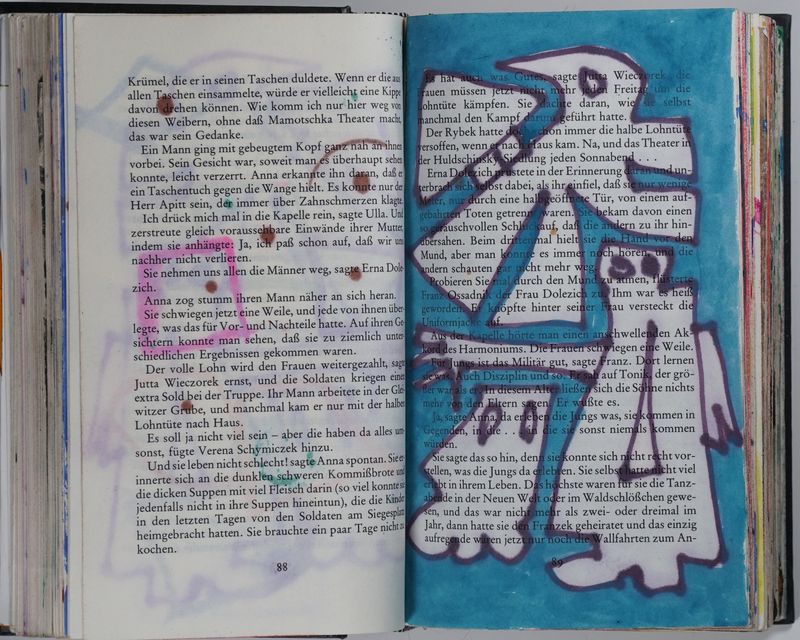 Krümel, die er in seinen Taschen duldete. Wenn er die aus
allen Taschen einsammelte, würde er vielleicht eine Kippe
davon drehen können. Wie komm ich nur hier weg von
diesen Weibern, ohne daß Mamotschka Theater macht,
das war sein Gedanke.
Ein Mann ging mit gebeugtem Kopf ganz nah an ihnen
vorbei. Sein Gesicht war, soweit man es überhaupt sehen
konnte, leicht verzerrt. Anna erkannte ihn daran, daß er
ein Taschentuch gegen die Wange hielt. Es konnte nur der
Herr Apitt sein, der immer über Zahnschmerzen klagte.
Ich drück mich mal in die Kapelle rein, sagte Ulla. Und
zerstreute gleich voraussehbare Einwände ihrer Mutter,
indem sie anhängte: Ja, ich paß schon auf, daß wir uns
nachher nicht verlieren.
Sie nehmen uns allen die Männer weg, sagte Erna Dole-
zich.
Anna zog stumm ihren Mann näher an sich heran.
Sie schwiegen jetzt eine Weile, und jede von ihnen über-
legte, was das für Vor- und Nachteile hatte. Auf ihren Ge-
sichtern konnte man sehen, daß sie zu ziemlich unter-
schiedlichen Ergebnissen gekommen waren.
Der volle Lohn wird den Frauen weitergezahlt, sagte
Jutta Wieczorek ernst, und die Soldaten kriegen einen
extra Sold bei der Truppe. Ihr Mann arbeitete in der Glei-
witzer Grube, und manchmal kam er nur mit der halben
Lohntüte nach Haus.
Es soll ja nicht viel sein – aber die haben da alles um-
sonst, fügte Verena Schymiczek hinzu.
Und sie leben nicht schlecht! sagte Anna spontan. Sie er-
innerte sich an die dunklen schweren Kommißbrote und
die dicken Suppen mit viel Fleisch darin (so viel konnte sie
jedenfalls nicht in ihre Suppen hineintun), die die Kinder
in den letzten Tagen von den Soldaten am Siegesplatz
heimgebracht hatten. Sie brauchte ein paar Tage nicht zu
kochen.
88
Es hat auch was Gutes, sagte Jutta Wieczorek, die
Frauen müssen jetzt nicht mehr jeden Freitag um die
Lohntüte kämpfen. Sie dachte daran, wie sie selbst
manchmal den Kampf darum geführt hatte.
Der Rybek hatte doch schon immer die halbe Lohntüte
versoffen, wenn er nach Haus kam. Na, und das Theater in
der Huldschinsky-Siedlung jeden Sonnabend . . .
Erna Dolezich tröstete in der Erinnerung daran und un-
terbrach sich selbst dabei, als ihr einfiel, daß sie nur wenige
Meter, nur durch eine halbgeöffnete Tür, von einem auf-
gebahrten Toten getrennt waren. Sie bekam davon einen
so geräuschvollen Schluckauf, daß die andern zu ihr hin-
übersahen. Beim drittenmal hielt sie die Hand vor den
Mund, aber man konnte es immer noch hören, und die
andern schauten gar nicht mehr weg.
Probieren Sie mal, durch den Mund zu atmen, flüsterte
Franz Ossadnik der Frau Dolezich zu. Ihm war es heiß
geworden. Er knöpfte hinter seiner Frau versteckt die
Uniformjacke auf.
Aus der Kapelle hörte man einen anschwellenden Ak-
kord des Harmoniums. Die Frauen schwiegen eine Weile.
Für Jungs ist das Militär gut, sagte Franz. Dort lernen
sie was. Auch Disziplin und so. Er sah auf Tonik, der grö-
ßer war als er. In diesem Alter ließen sich die Söhne nichts
mehr von den Eltern sagen. Er wußte es.
Ja, sagte Anna, da erleben die Jungs was, sie kommen in
Gegenden, in die . . . in die sie sonst niemals kommen
würden.
Sie sagte das so hin, denn sie konnte sich nicht recht vor-
stellen, was die Jungs da erleben. Sie selbst hatte nicht viel
erlebt in ihrem Leben. Das höchste waren für sie die Tanz-
abende in der Neuen Welt oder im Waldschlößchen gewe-
sen, und das war nicht mehr als zwei- oder dreimal im
Jahr, dann hatte sie den Franzek geheiratet und das einzig
aufregende waren jetzt nur noch die Wallfahrten zum An-
89